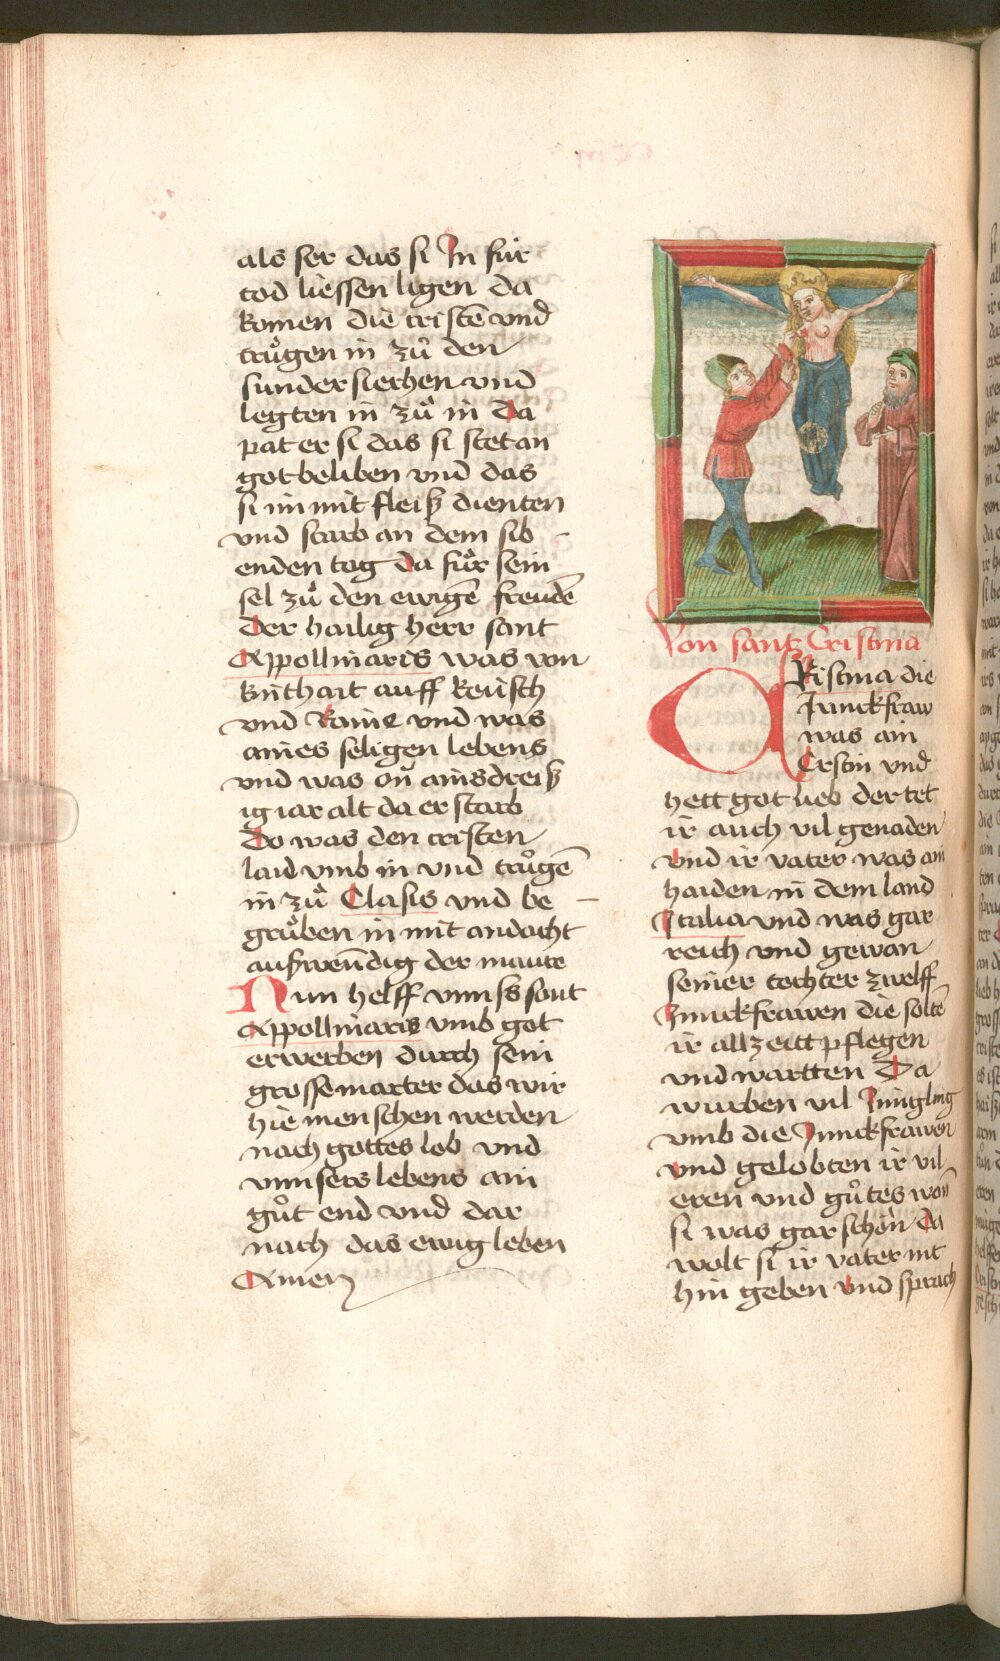 als ser das si In für
tod liessen ligen da
komen die cristē vnd
trůgen in zů den
sunder siechen vnd
legten in zů in Da
pat er si das si stet an
got beliben vnd das
si im mit fleiß dienten
vnd starb an dem sib
enden tag Da fůr sein
sel zů den ewigē freudē
Der hailig herr sant
Appollinaris was von
kinthait auff keüsch
vnd Raine vnd was
aines seligen lebens
vnd was on ainsdreiß
ig iar alt da er starb
Do was den cristen
laid vmb in vnd trůgē
in zů Clasis vnd be
grůben in mit andacht
außwendig der maure
Nun helff vnnß sant
Appollinaris vmb got
erwerben durch sein
grosse marter das wir
hie menschen werden
nach gottes lob vnd
vnnsers lebens ain
gůt end vnd dar
nach das ewig leben
Amen
Von santz Cristina
CRistina die
Junckfraw
was ain
Cristin vnd
hett got lieb der tet
ir auch vil genaden
Vnd ir vater was ain
haiden in dem land
Italia vnd was gar
reich vnd gewan
seiner tochter zwelff
Junckfrawen die soltē
ir allzeitt pflegen
vnd wartten Da
wurben vil Jüngling
vmb die Junckfrawen
vnd gelobten ir vil
eren vnd gůtes wan
si was gar schön Da
wolt si ir vater nit
hin geben Vnd sprach